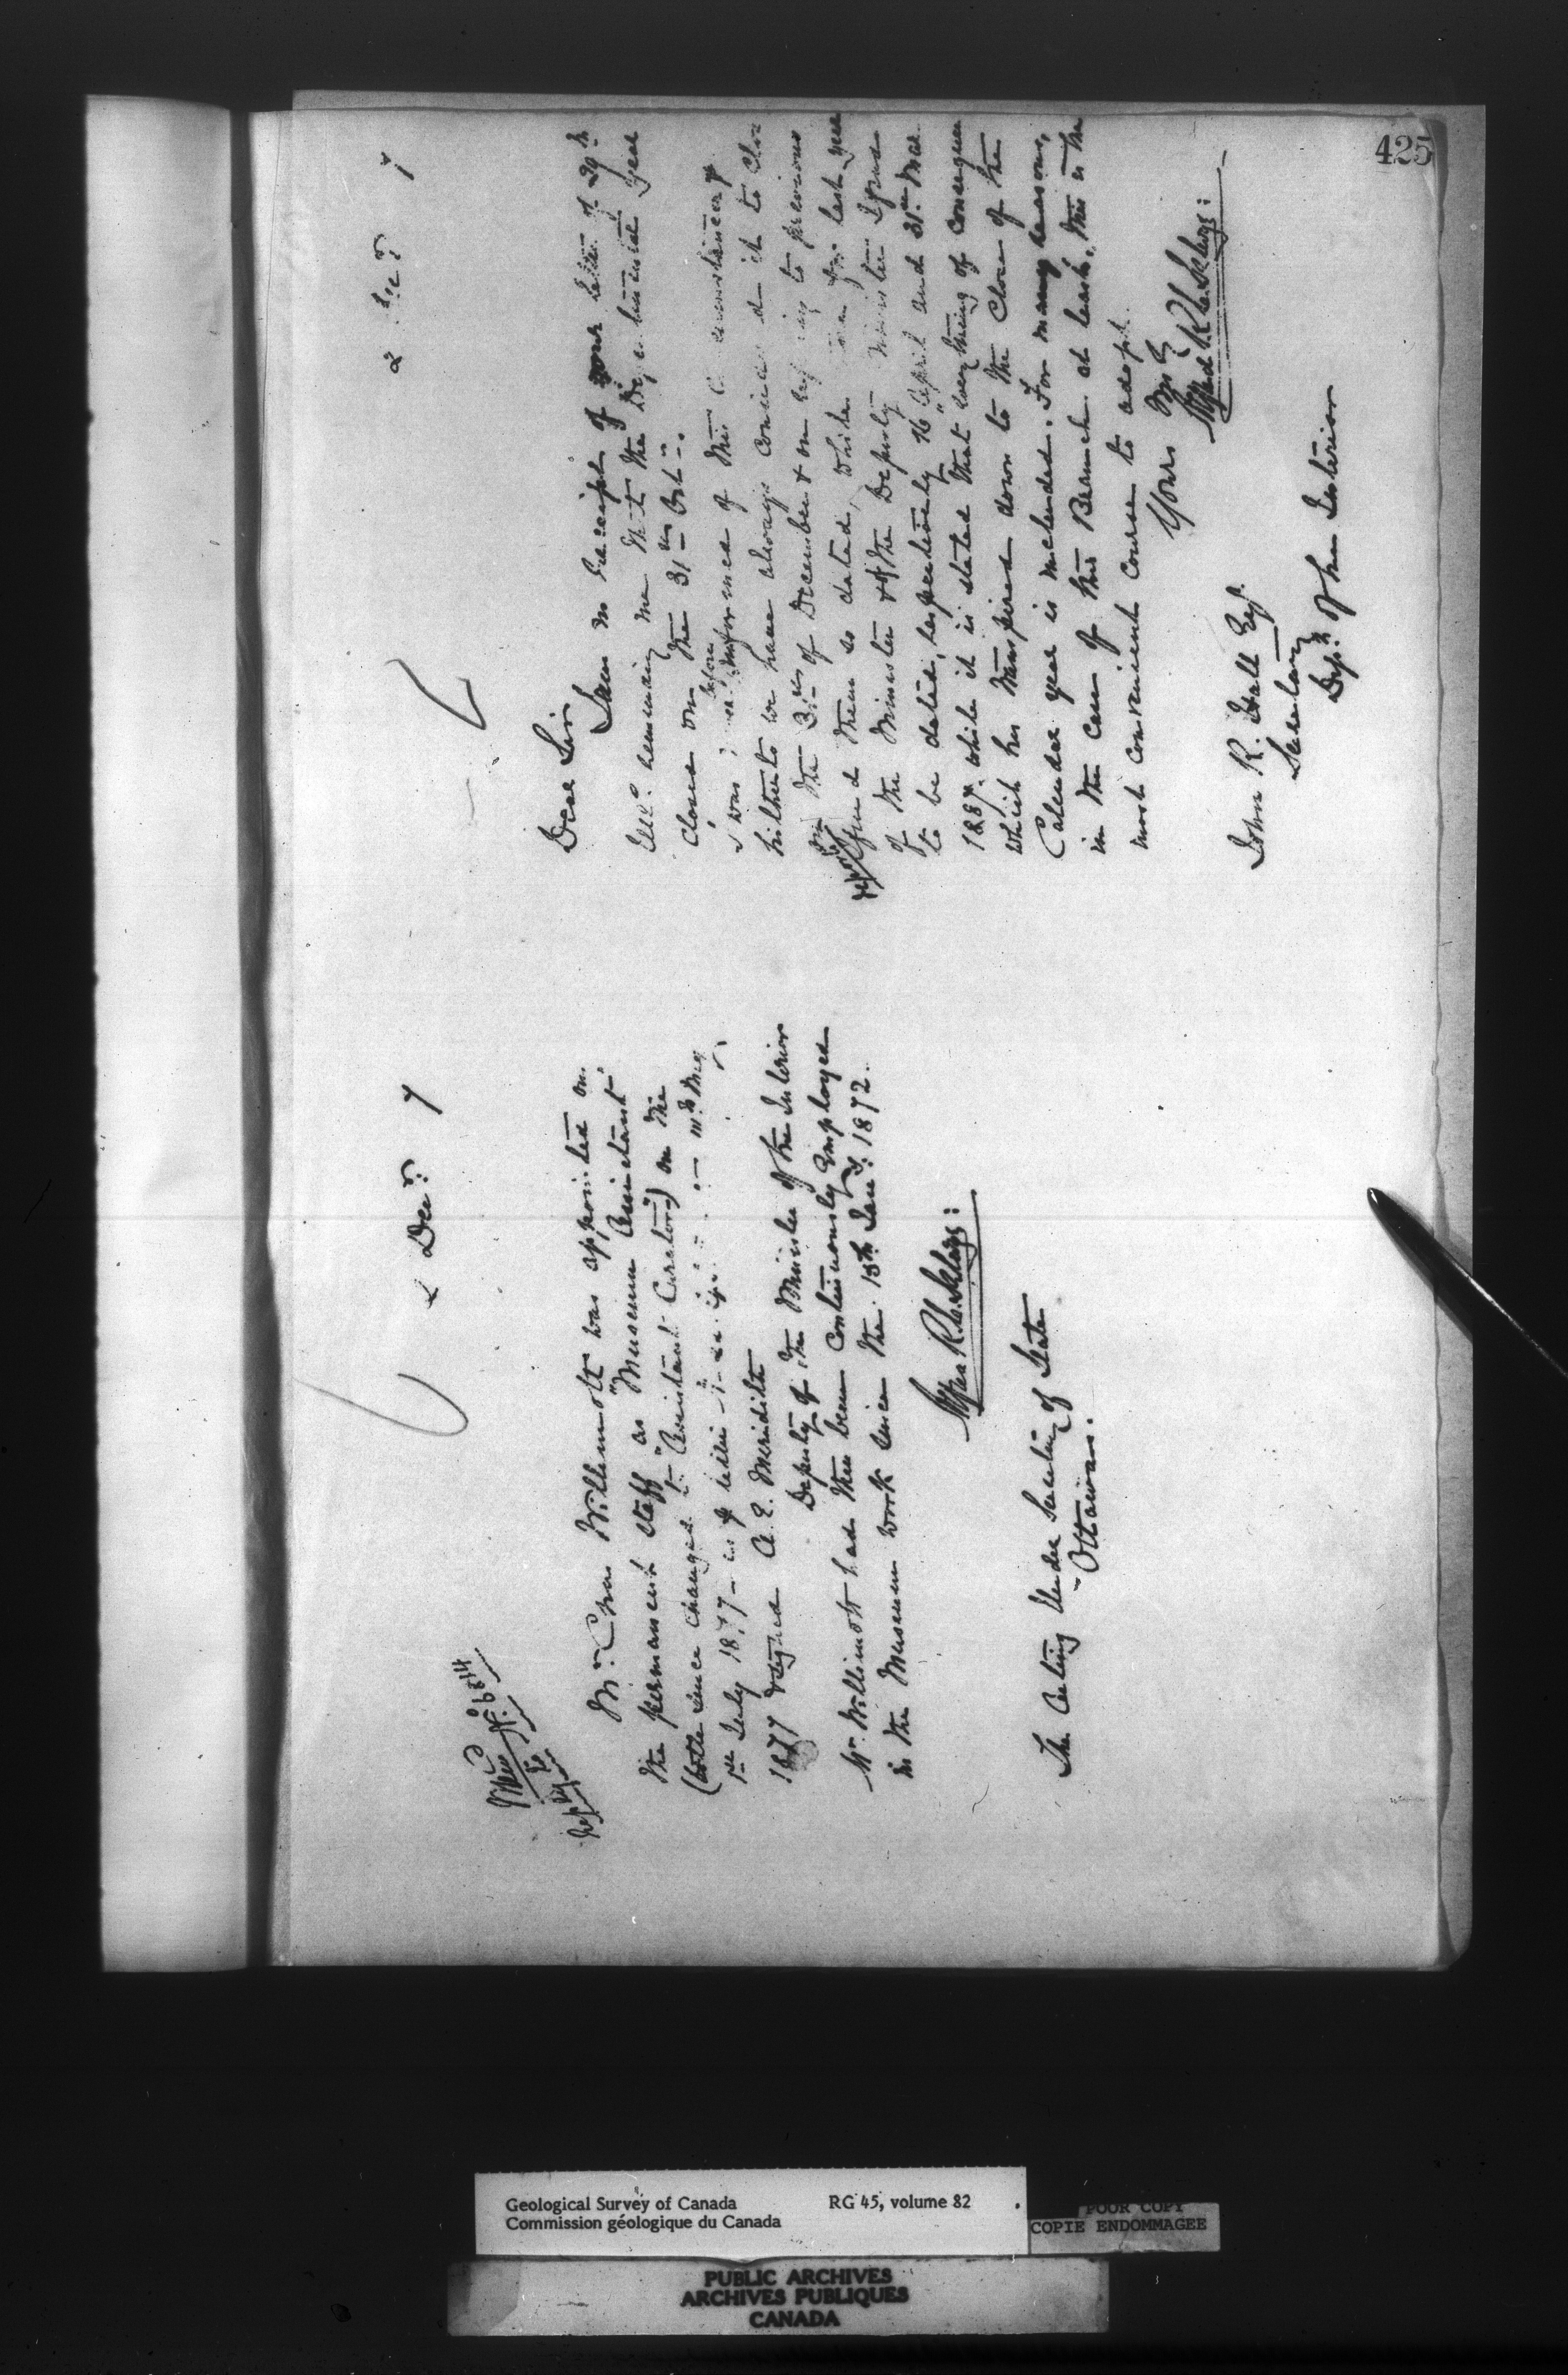 2 Decr. 7
Memo
No. 6814
Reply to
Mr. Chas Willimott was appointed on
the permanent staff as "Museum Assistant"
(title since changed to "Assistant Curator") on the
1st July 1877 - letter
1877 signed A. E. Meredith
Deputy of the Minister of the Interior
Mr. Willimott had then been continuously employed
in the Museum work since the 15th Jany. 1872.
Signed R.C. Selwyn:
The Acting Under Secretary of State
Ottawa.
2 Decr 7
Dear Sir
I am in receipt of your letter of 29th
reminding me that the Departmental Year
closed on the 31st Octr.
I was before informed of this
hitherto we have always considered it to close
on the 31st of December & on referring to previous
reports find them so dated, while for last year
of the Minister & of the Deputy Minister I find
to be dated, respectively 16th April and 31st Mar
1887. while it is stated that everything of consequence
which has transpired down to the close of the
Calendar year is included. For many reasons,
in the case of this Branch at least, this is the
most convenient course to adopt.
Yours
Signed R.C. Selwyn:
John R. Hall Esq.
Secretary
Dept. of the Interior
425
Geological Survey of Canada RG 45, volume 82
Commission géologique du Canada
POOR COPY
COPIE ENDOMMAGEE
PUBLIC ARCHIVES
ARCHIVES PUBLIQUES
CANADA